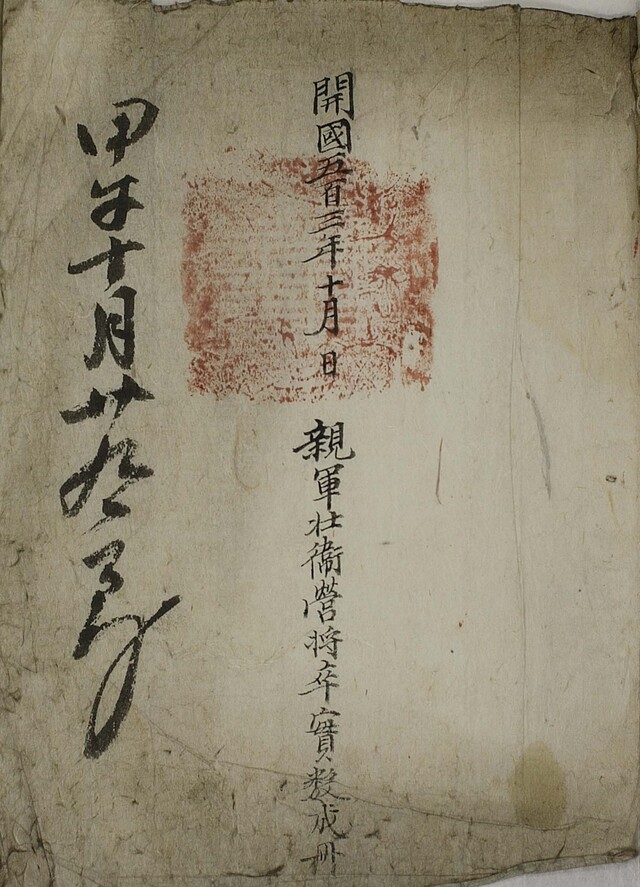 開國五百三年十月 日 親軍壯衞營將卒實數成冊
甲午十月廿九日